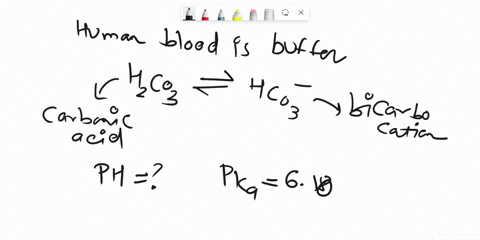 Human blood is buffer
H₂CO₃ ⇌ HCO₃⁻
Carbonic
acid
bicarbo
cation
PH = ?
PKa = 6.